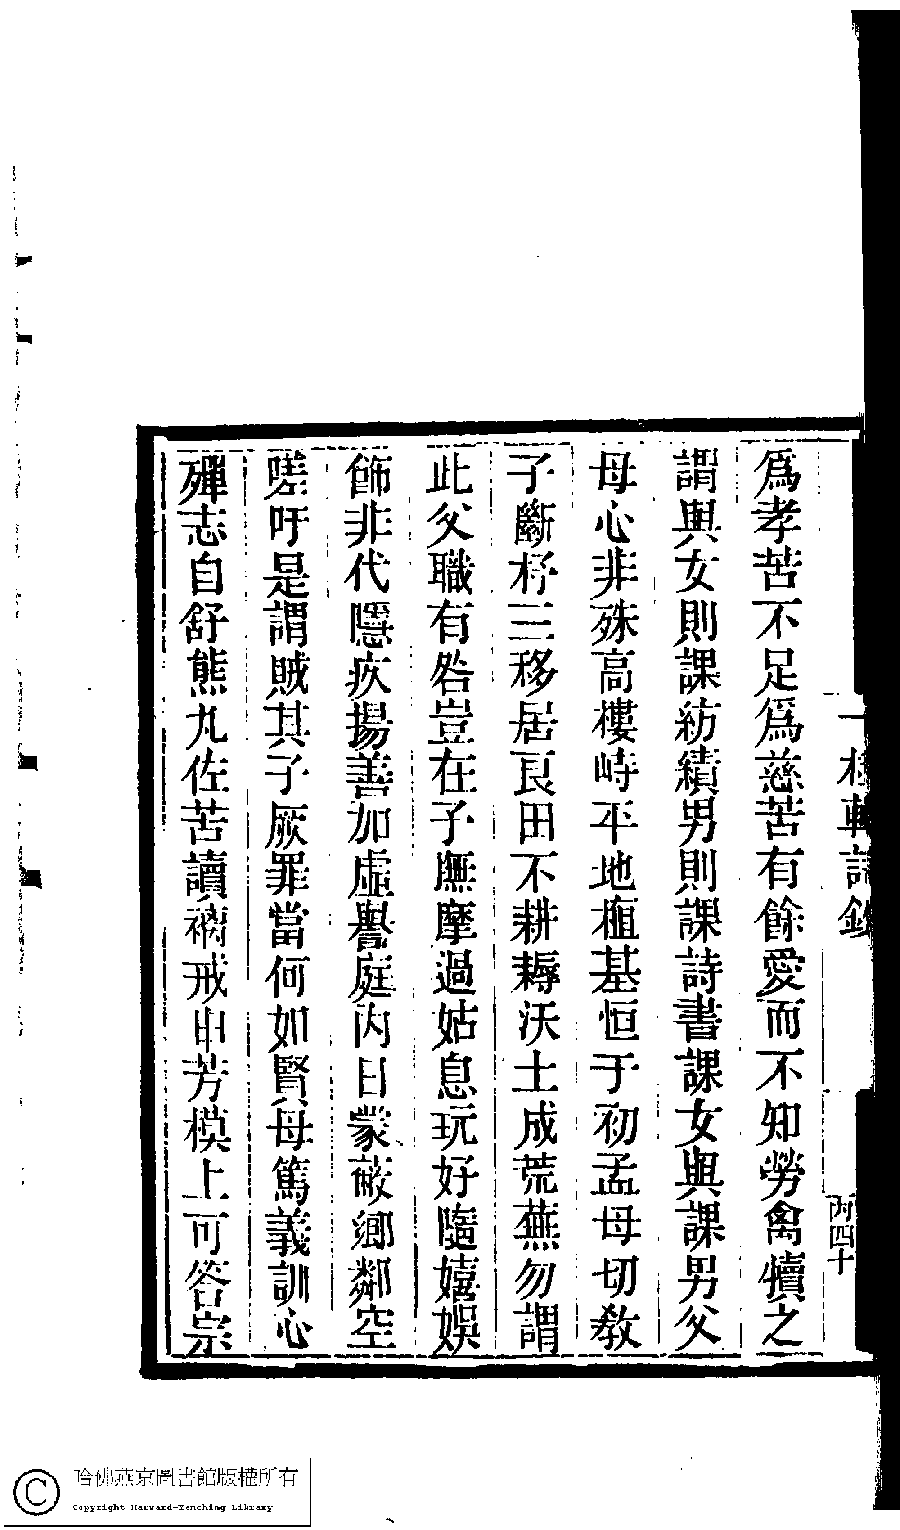 爲孝苦不足爲慈苦有餘愛而不知勞禽犢之
謂與女則課紡績男則課詩書課女與課男父
母心非殊高樓峙平地植基恒于初孟母切教
子斷杼三移居良田不耕耨沃土成荒蕪勿謂
此父職有咎豈在子撫摩過姑息玩好隨嬉娛
飾非代隱疚揚善加虛譽庭內日蒙蔽鄉鄰空
嗟吁是謂賊其子厥罪當何如賢母篤義訓心
殫志自舒熊丸佐苦讀褵戒申芳模上可答宗
一桂軒詩鈔
丙四十
哈佛燕京圖書館版權所有
Copyright Harvard-Yenching Library